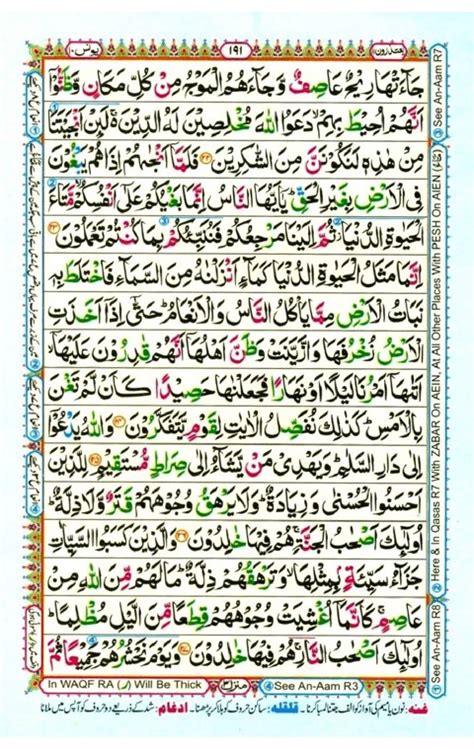 یونس ۱۰
۱۹۱
یعتذرون ۱۱
جَآءَتْهَا رِيْحٌ عَاصِفٌ وَّجَآءَهُمُ الْمَوْجُ مِنْ كُلِّ مَكَانٍ وَّظَنُّوْۤا
اَنَّهُمْ اُحِيْطَ بِهِمْۙ دَعَوُا اللّٰهَ مُخْلِصِيْنَ لَهُ الدِّيْنَ ۚ لَئِنْ اَنْجَيْتَنَا
مِنْ هٰذِهٖ لَنَكُوْنَنَّ مِنَ الشّٰكِرِيْنَ ۲۲ فَلَمَّاۤ اَنْجٰىهُمْ اِذَا هُمْ يَبْغُوْنَ
فِى الْاَرْضِ بِغَيْرِ الْحَقِّ ؕ يٰۤاَيُّهَا النَّاسُ اِنَّمَا بَغْيُكُمْ عَلٰۤى اَنْفُسِكُمْ ۙ مَّتَاعَ
الْحَيٰوةِ الدُّنْيَا ۫ ثُمَّ اِلَيْنَا مَرْجِعُكُمْ فَنُنَبِّئُكُمْ بِمَا كُنْتُمْ تَعْمَلُوْنَ ۲۳
اِنَّمَا مَثَلُ الْحَيٰوةِ الدُّنْيَا كَمَآءٍ اَنْزَلْنٰهُ مِنَ السَّمَآءِ فَاخْتَلَطَ بِهٖ
نَبَاتُ الْاَرْضِ مِمَّا يَاْكُلُ النَّاسُ وَالْاَنْعَامُ ؕ حَتّٰۤى اِذَاۤ اَخَذَتِ
الْاَرْضُ زُخْرُفَهَا وَازَّيَّنَتْ وَظَنَّ اَهْلُهَاۤ اَنَّهُمْ قٰدِرُوْنَ عَلَيْهَاۤ ۙ
اَتٰىهَاۤ اَمْرُنَا لَيْلًا اَوْ نَهَارًا فَجَعَلْنٰهَا حَصِيْدًا كَاَنْ لَّمْ تَغْنَ
بِالْاَمْسِ ؕ كَذٰلِكَ نُفَصِّلُ الْاٰيٰتِ لِقَوْمٍ يَّتَفَكَّرُوْنَ ۲۴ وَاللّٰهُ يَدْعُوْۤا
اِلٰى دَارِ السَّلٰمِ ؕ وَيَهْدِىْ مَنْ يَّشَآءُ اِلٰى صِرَاطٍ مُّسْتَقِيْمٍ ۲۵ لِلَّذِيْنَ
اَحْسَنُوا الْحُسْنٰى وَزِيَادَةٌ ؕ وَلَا يَرْهَقُ وُجُوْهَهُمْ قَتَرٌ وَّلَا ذِلَّةٌ ؕ
اُولٰٓئِكَ اَصْحٰبُ الْجَنَّةِ ۚ هُمْ فِيْهَا خٰلِدُوْنَ ۲۶ وَالَّذِيْنَ كَسَبُوا السَّيِّاٰتِ
جَزَآءُ سَيِّئَةٍۭ بِمِثْلِهَا ۙ وَتَرْهَقُهُمْ ذِلَّةٌ ؕ مَا لَهُمْ مِّنَ اللّٰهِ مِنْ
عَاصِمٍ ۚ كَاَنَّمَاۤ اُغْشِيَتْ وُجُوْهُهُمْ قِطَعًا مِّنَ الَّيْلِ مُظْلِمًا ؕ
اُولٰٓئِكَ اَصْحٰبُ النَّارِ ۚ هُمْ فِيْهَا خٰلِدُوْنَ ۲۷ وَيَوْمَ نَحْشُرُهُمْ جَمِيْعًا ثُمَّ
① See An-Aam R8 ② Here & In Qasas R7 With ZABAR On AEIN, At All Other Places With PESH On AIEN (مَتَاعُ) ③ See An-Aam R7
In WAQF RA (ر) Will Be Thick
منزل ۳
④ See An-Aam R3
غنه: نون یا میم کی آواز کو الف جتنا لمبا کرنا۔ قلقله: ساکن حروف کو ہلا کر پڑھنا۔ ادغام: شد کے ذریعے دو حروف کو آپس میں ملانا